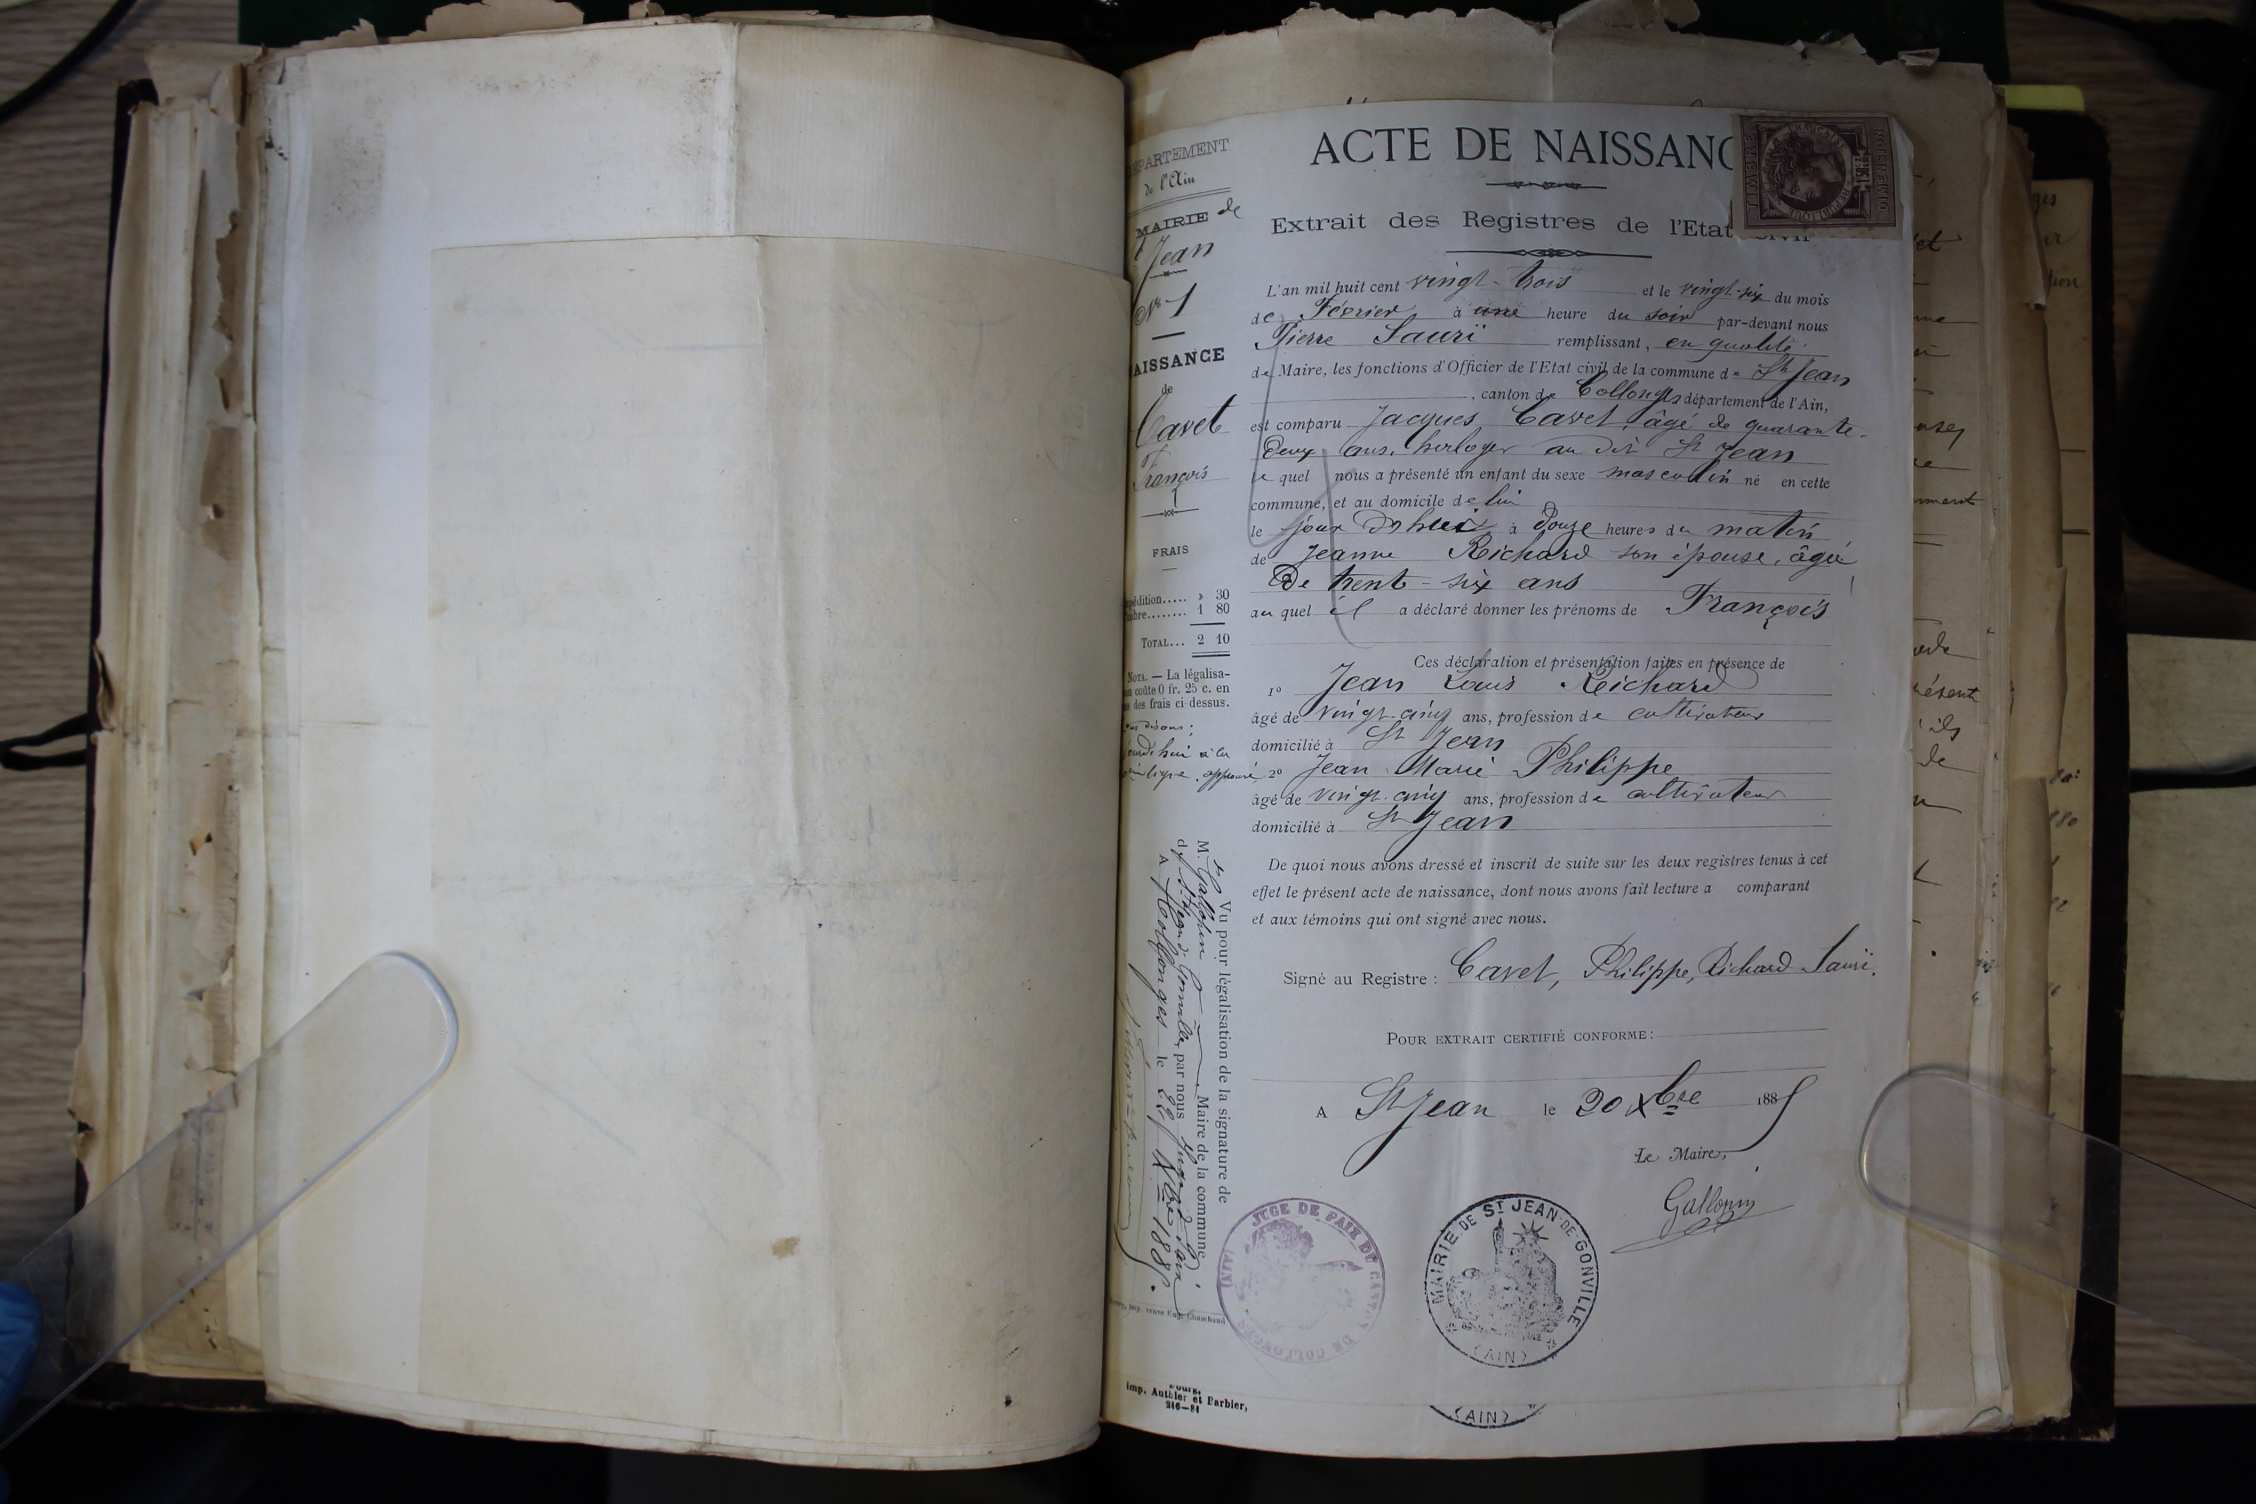 DÉPARTEMENT
de l'Ain
MAIRIE de
St Jean
No 1
NAISSANCE
de
Cavet
François
FRAIS
Expédition..... » 30
Timbre........ 1 80
TOTAL... 2 10
NOTA. — La légalisa-
tion coûte 0 fr. 25 c. en
sus des frais ci-dessus.
ligne, approuvé
Vu pour légalisation de la signature de
M. Gallopin Maire de la commune
de St Jean de Gonville, par nous Juge de Paix
A Collonges le Xbre 1885.
Bourg,
Imp. Authier et Barbier,
246—84
ACTE DE NAISSANC
Extrait des Registres de l'Etat civil
L'an mil huit cent vingt-trois et le vingt-six du mois
de Février à une heure du soir par-devant nous
Pierre Sauri remplissant, en qualité
de Maire, les fonctions d'Officier de l'Etat civil de la commune de St Jean
, canton de Collonges département de l'Ain,
est comparu Jacques Cavet, âgé de quarante-
deux ans, horloger au dit St Jean
le quel nous a présenté un enfant du sexe masculin né en cette
commune, et au domicile de lui
le jour d'hui à douze heures du matin
de Jeanne Richard son épouse, âgée
de trent-six ans
au quel il a déclaré donner les prénoms de François
Ces déclaration et présentation faites en présence de
1º Jean Louis Richard
âgé de vingt-cinq ans, profession de cultivateur
domicilié à St Jean
2º Jean Marie Philippe
âgé de vingt-cinq ans, profession de cultivateur
domicilié à St Jean
De quoi nous avons dressé et inscrit de suite sur les deux registres tenus à cet
effet le présent acte de naissance, dont nous avons fait lecture a comparant
et aux témoins qui ont signé avec nous.
Signé au Registre : Cavet, Philippe, Richard Sauri.
POUR EXTRAIT CERTIFIÉ CONFORME :
A St Jean le 20 Xbre 1885
Le Maire,
Gallopin
JUGE DE PAIX DU CANTON DE COLLONGES
(AIN)
MAIRIE DE ST JEAN DE GONVILLE
(AIN)
(AIN)